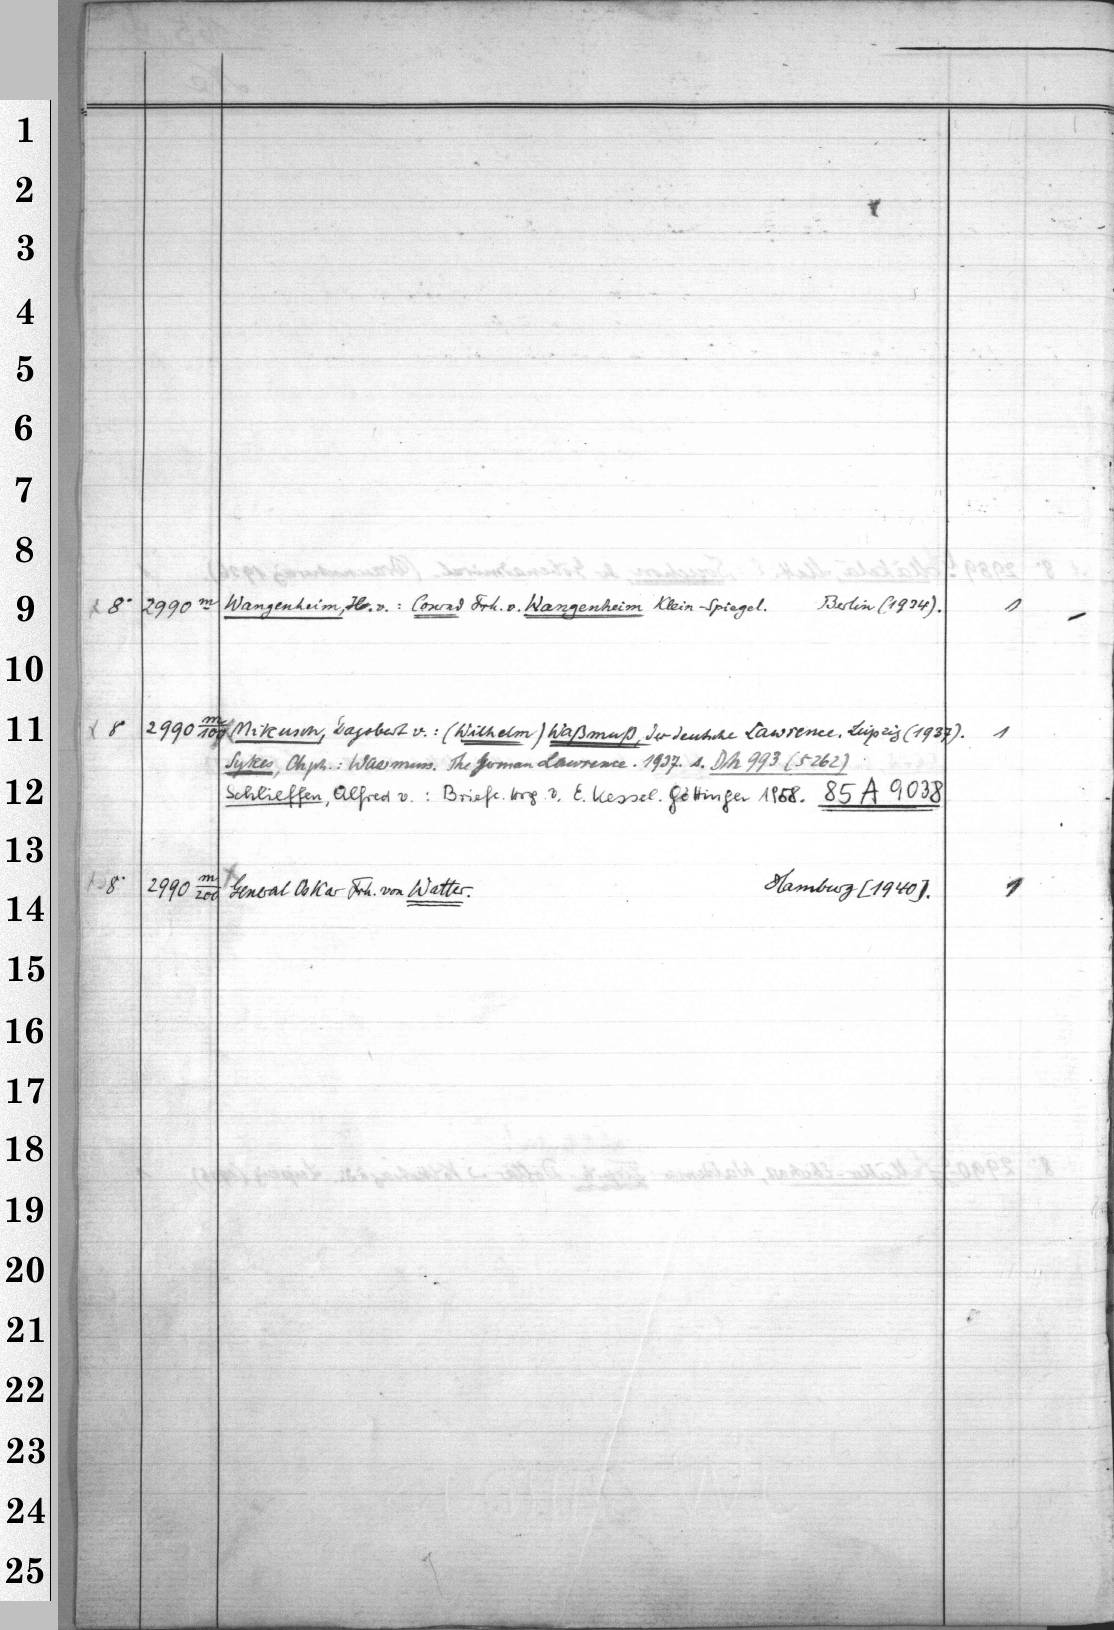 1
2
3
4
5
6
7
8
9
8° 2990 m Wangenheim, H. v.: Conrad Frh. v. Wangenheim Klein-Spiegel. Berlin (1934). 1
10
11
8° 2990 m/100 Mikusch, Dagobert v.: (Wilhelm) Waßmuß, der deutsche Lawrence. Leipzig (1937). 1
Sykes, Chph.: Wassmuss. The German Lawrence. 1937. s. Dh 993 (5262)
12
Schlieffen, Alfred v.: Briefe. hrg. v. E. Kessel. Göttingen 1958. 85 A 9038
13
8° 2990 m/200 General Oskar Frh. von Watter. Hamburg [1940]. 1
14
15
16
17
18
19
20
21
22
23
24
25